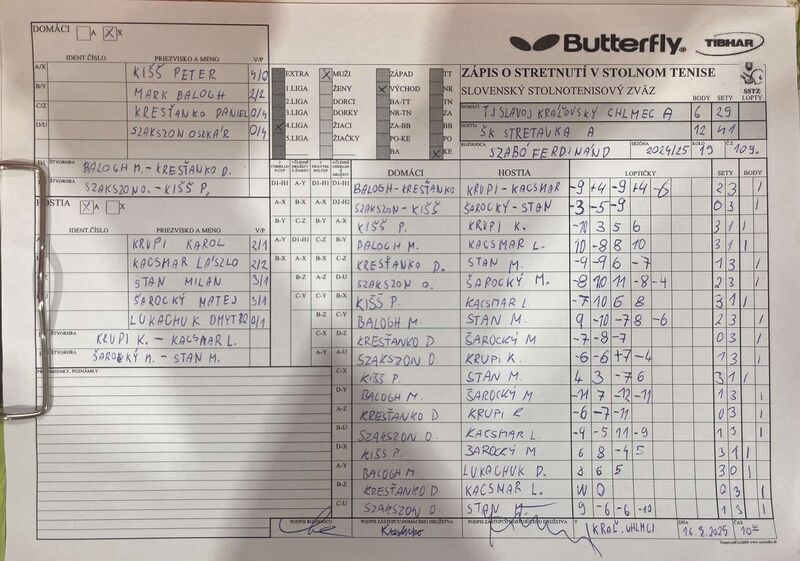 DOMÁCI A X X
Butterfly TIBHAR
IDENT.ČÍSLO PRIEZVISKO A MENO V/P
A/X KIŠŠ PETER 4/0
B/Y MARK BALOGH 2/2
C/Z KRESŤANKO DANIEL 0/4
D/U SZAKSZON OSKÁR 0/4
EXTRA X MUŽI ZÁPAD TT
1.LIGA ŽENY X VÝCHOD NR
2.LIGA DORCI BA-TT TN
3.LIGA DORKY NR-TN ZA
X 4.LIGA ŽIACI ZA-BB BB
5.LIGA ŽIAČKY PO-KE PO
BA X KE
ZÁPIS O STRETNUTÍ V STOLNOM TENISE
SLOVENSKÝ STOLNOTENISOVÝ ZVÄZ
SSTZ
BODY SETY LOPTY
DOMÁCI TJ SLAVOJ KRÁĽOVSKÝ CHLMEC A 6 29
HOSTIA ŠK STRETAVKA A 12 41
ROZHODCA SZABÓ FERDINÁND SEZÓNA 2024/25 KOLO 19 Č.Z. 109.
D1 ŠTVORHRA BALOGH M. - KRESŤANKO D.
ŠTVORHRA SZAKSZON O. - KIŠŠ P.
HOSTIA X A X
IDENT.ČÍSLO PRIEZVISKO A MENO V/P
KRUPI KAROL 2/1
KACSMAR LÁSZLO 2/2
STAN MILAN 3/1
ŠAROCKÝ MATEJ 3/1
LUKACHUK DMYTRO 0/1
ŠTVORHRA KRUPI K. - KACSMAR L.
ŠTVORHRA ŠAROCKÝ M. - STAN M.
PRIPOMIENKY, POZNÁMKY
DOMÁCI HOSTIA LOPTIČKY SETY BODY
D1-H1 A-Y D1-H1 D1-H1 BALOGH - KRESŤANKO KRUPI - KACSMAR -9 +4 -9 +4 -6 2 3 1
A-X B-X A-X D2-H2 SZAKSZON - KIŠŠ ŠAROCKÝ - STAN -3 -5 -9 0 3 1
B-Y C-Z B-Y A-X KIŠŠ P. KRUPI K. -10 3 5 6 3 1 1
A-Y D1-H1 C-Z B-Y BALOGH M. KACSMAR L. 10 -8 8 10 3 1 1
B-X A-X D1-H1 C-Z KRESŤANKO D. STAN M. -9 -9 6 -7 1 3 1
B-Z A-Z D-U SZAKSZON O. ŠAROCKÝ M. -8 10 11 -8 -4 2 3 1
C-Y B-X A-Y KIŠŠ P. KACSMAR L. -7 10 6 8 3 1 1
B-Z BALOGH M. STAN M. 9 -10 -7 8 -6 2 3 1
C-X D-Z KRESŤANKO D ŠAROCKÝ M -7 -8 -7 0 3 1
A-Y A-U SZAKSZON O. KRUPI K. -6 -6 +7 -4 1 3 1
C-X KIŠŠ P. STAN M. 4 3 -7 6 3 1 1
D-Y BALOGH M. ŠAROCKÝ M -11 7 -12 -11 1 3 1
A-Z KRESŤANKO D KRUPI K -6 -7 -11 0 3 1
B-U SZAKSZON O. KACSMAR L. -9 -5 11 -9 1 3 1
D-X KIŠŠ P. ŠAROCKÝ M. 6 8 -4 5 3 1 1
A-Y BALOGH M LUKACHUK D. 3 6 5 3 0 1
B-Z KRESŤANKO D KACSMAR L. W O 0 3 1
C-U SZAKSZON O. STAN M. 9 -6 -6 -10 1 3 1
PODPIS ROZHODCU PODPIS ZÁSTUPCU DOMÁCEHO DRUŽSTVA PODPIS ZÁSTUPCU HOSŤUJÚCEHO DRUŽSTVA V KRÁĽ. CHLMCI DŇA 16.3.2025 ČAS 10